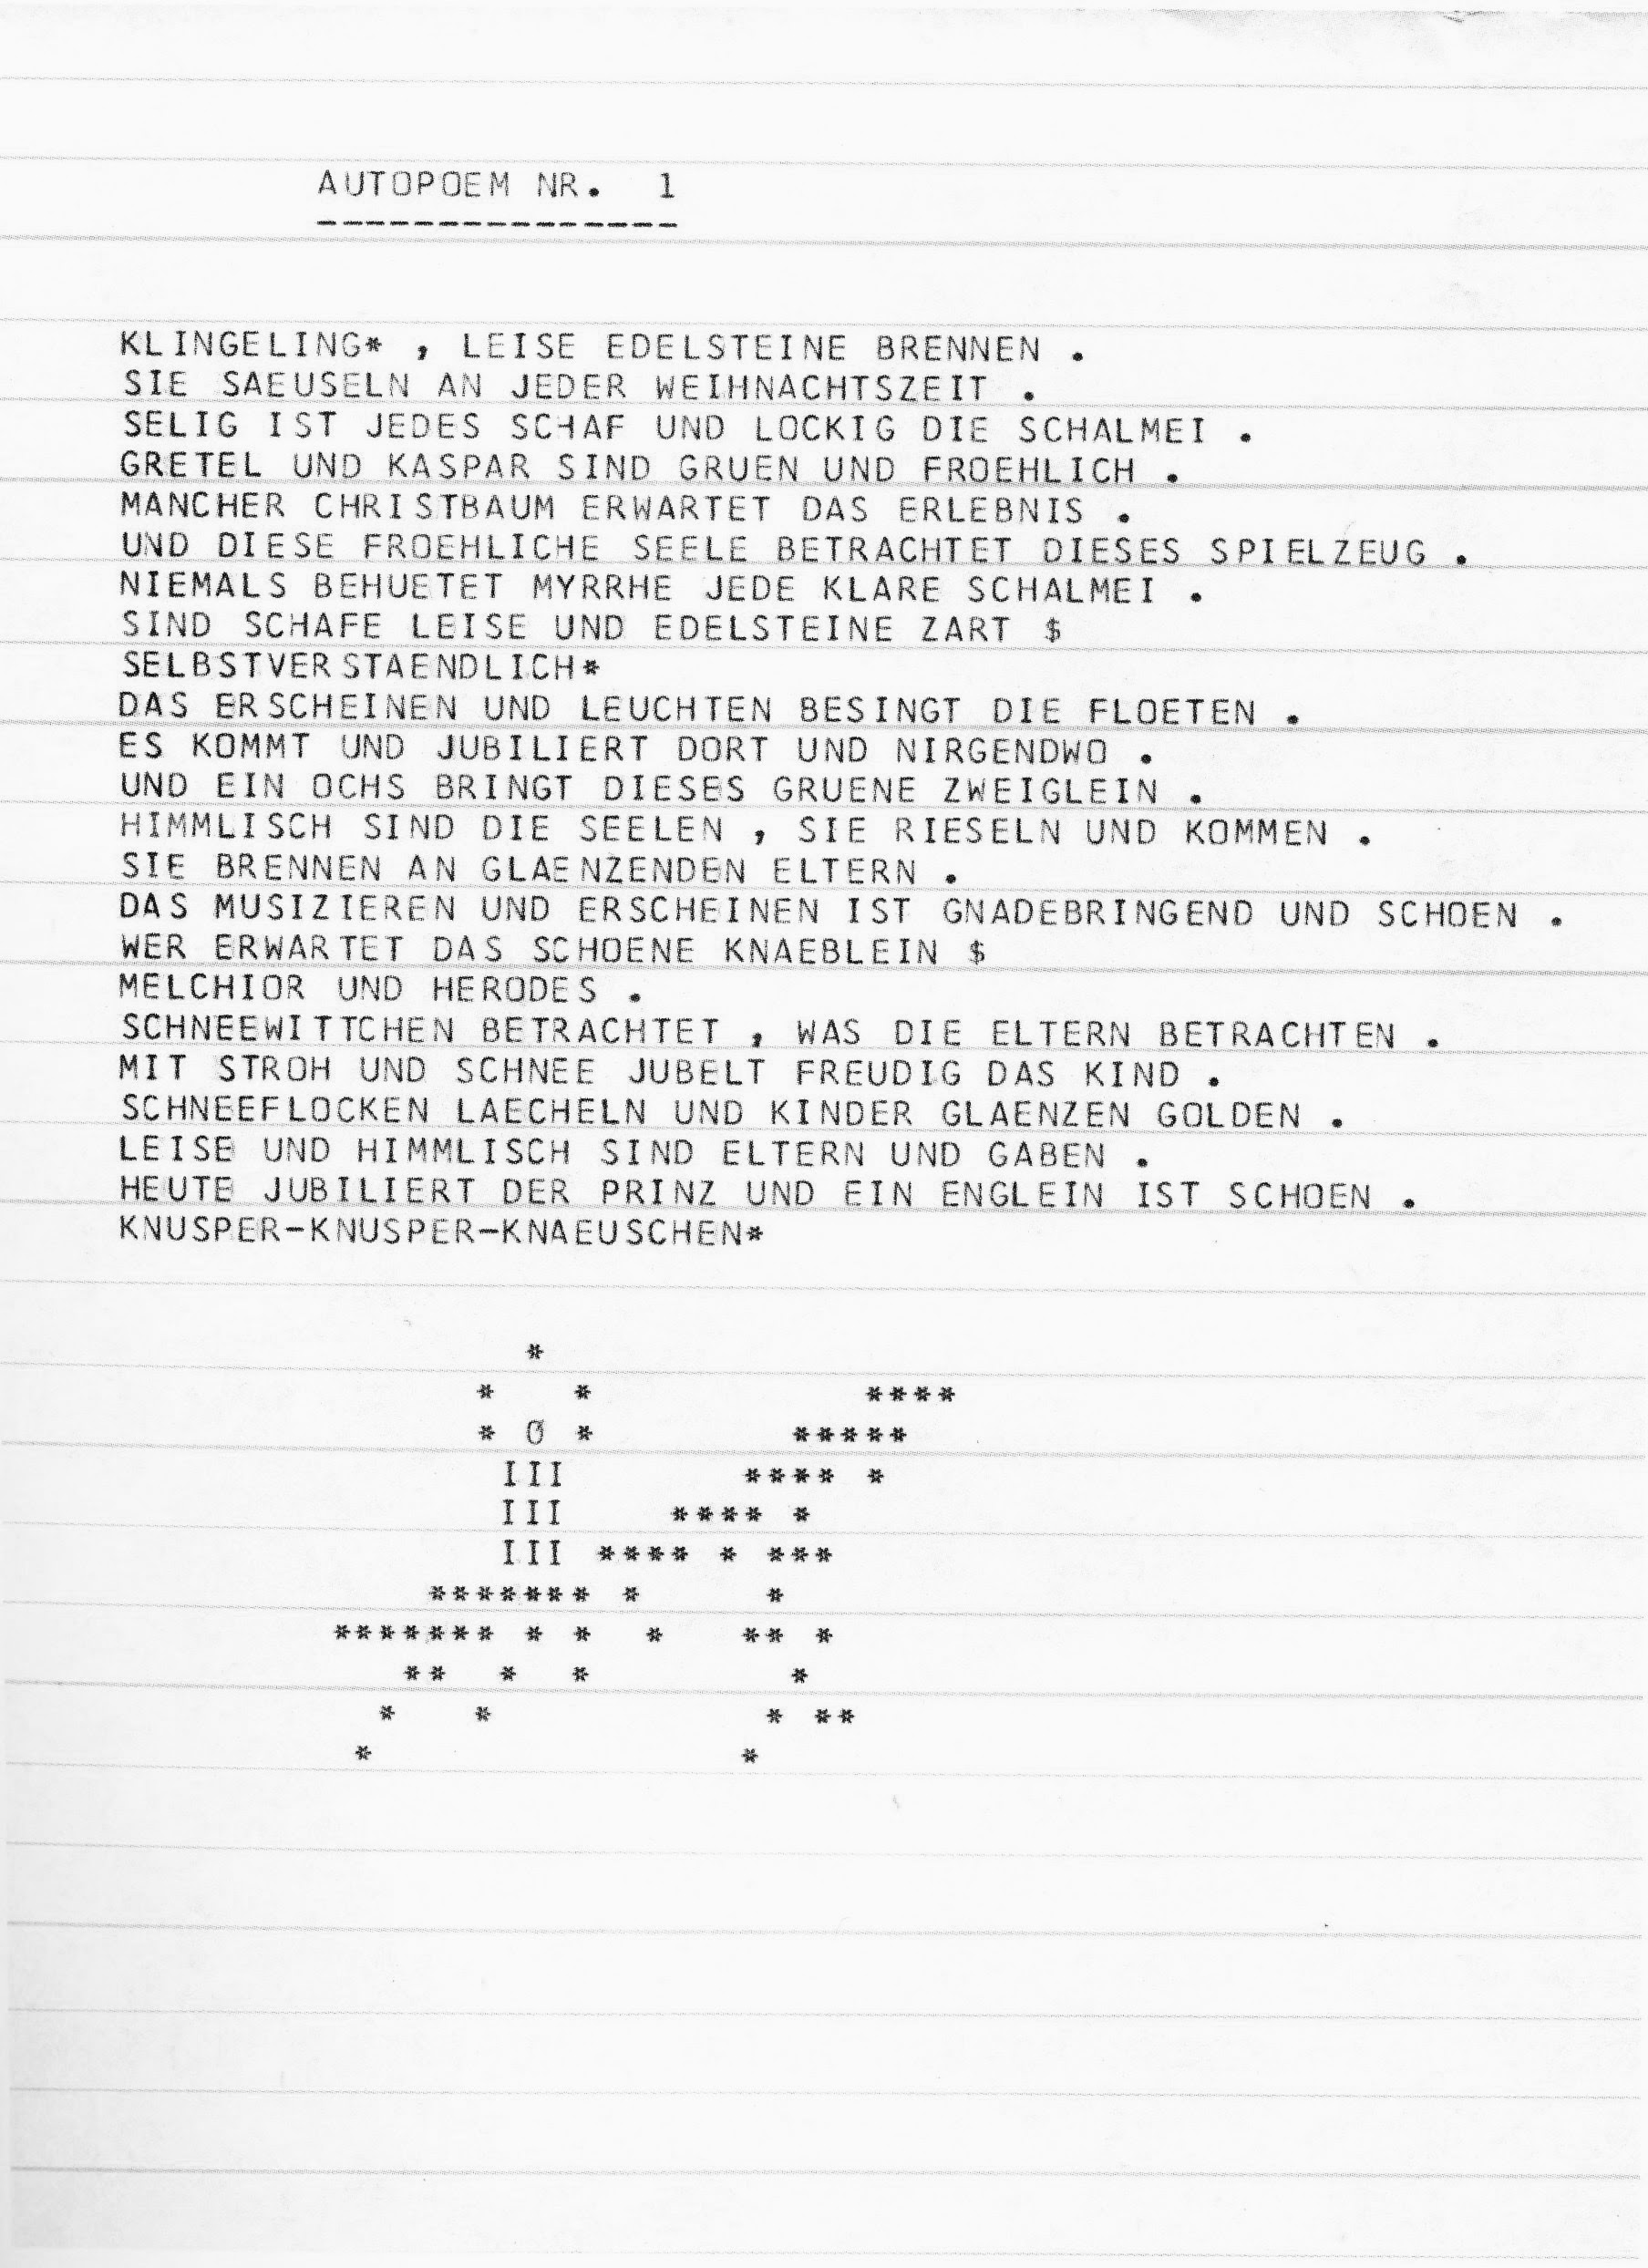 AUTOPOEM NR. 1
---------------
KLINGELING* , LEISE EDELSTEINE BRENNEN .
SIE SAEUSELN AN JEDER WEIHNACHTSZEIT .
SELIG IST JEDES SCHAF UND LOCKIG DIE SCHALMEI .
GRETEL UND KASPAR SIND GRUEN UND FROEHLICH .
MANCHER CHRISTBAUM ERWARTET DAS ERLEBNIS .
UND DIESE FROEHLICHE SEELE BETRACHTET DIESES SPIELZEUG .
NIEMALS BEHUETET MYRRHE JEDE KLARE SCHALMEI .
SIND SCHAFE LEISE UND EDELSTEINE ZART $
SELBSTVERSTAENDLICH*
DAS ERSCHEINEN UND LEUCHTEN BESINGT DIE FLOETEN .
ES KOMMT UND JUBILIERT DORT UND NIRGENDWO .
UND EIN OCHS BRINGT DIESES GRUENE ZWEIGLEIN .
HIMMLISCH SIND DIE SEELEN , SIE RIESELN UND KOMMEN .
SIE BRENNEN AN GLAENZENDEN ELTERN .
DAS MUSIZIEREN UND ERSCHEINEN IST GNADEBRINGEND UND SCHOEN .
WER ERWARTET DAS SCHOENE KNAEBLEIN $
MELCHIOR UND HERODES .
SCHNEEWITTCHEN BETRACHTET , WAS DIE ELTERN BETRACHTEN .
MIT STROH UND SCHNEE JUBELT FREUDIG DAS KIND .
SCHNEEFLOCKEN LAECHELN UND KINDER GLAENZEN GOLDEN .
LEISE UND HIMMLISCH SIND ELTERN UND GABEN .
HEUTE JUBILIERT DER PRINZ UND EIN ENGLEIN IST SCHOEN .
KNUSPER-KNUSPER-KNAEUSCHEN*
*
* * ****
* 0 * *****
III **** *
III **** *
III **** * ***
******* * *
******* * * * ** *
** * * *
* * * **
* *